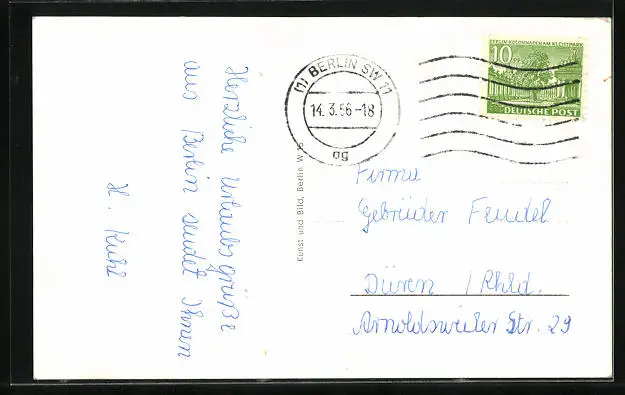 Herzliche Urlaubsgrüße
aus Berlin sendet Ihnen
H. Kühl
Kunst und Bild, Berlin W
(1) BERLIN SW 11
14.3.56-18
BERLIN·KOLONNADEN AM KLEISTPARK
10
DEUTSCHE POST
Firma
Gebrüder Feudel
Düren /Rhld.
Arnoldsweiler Str. 29